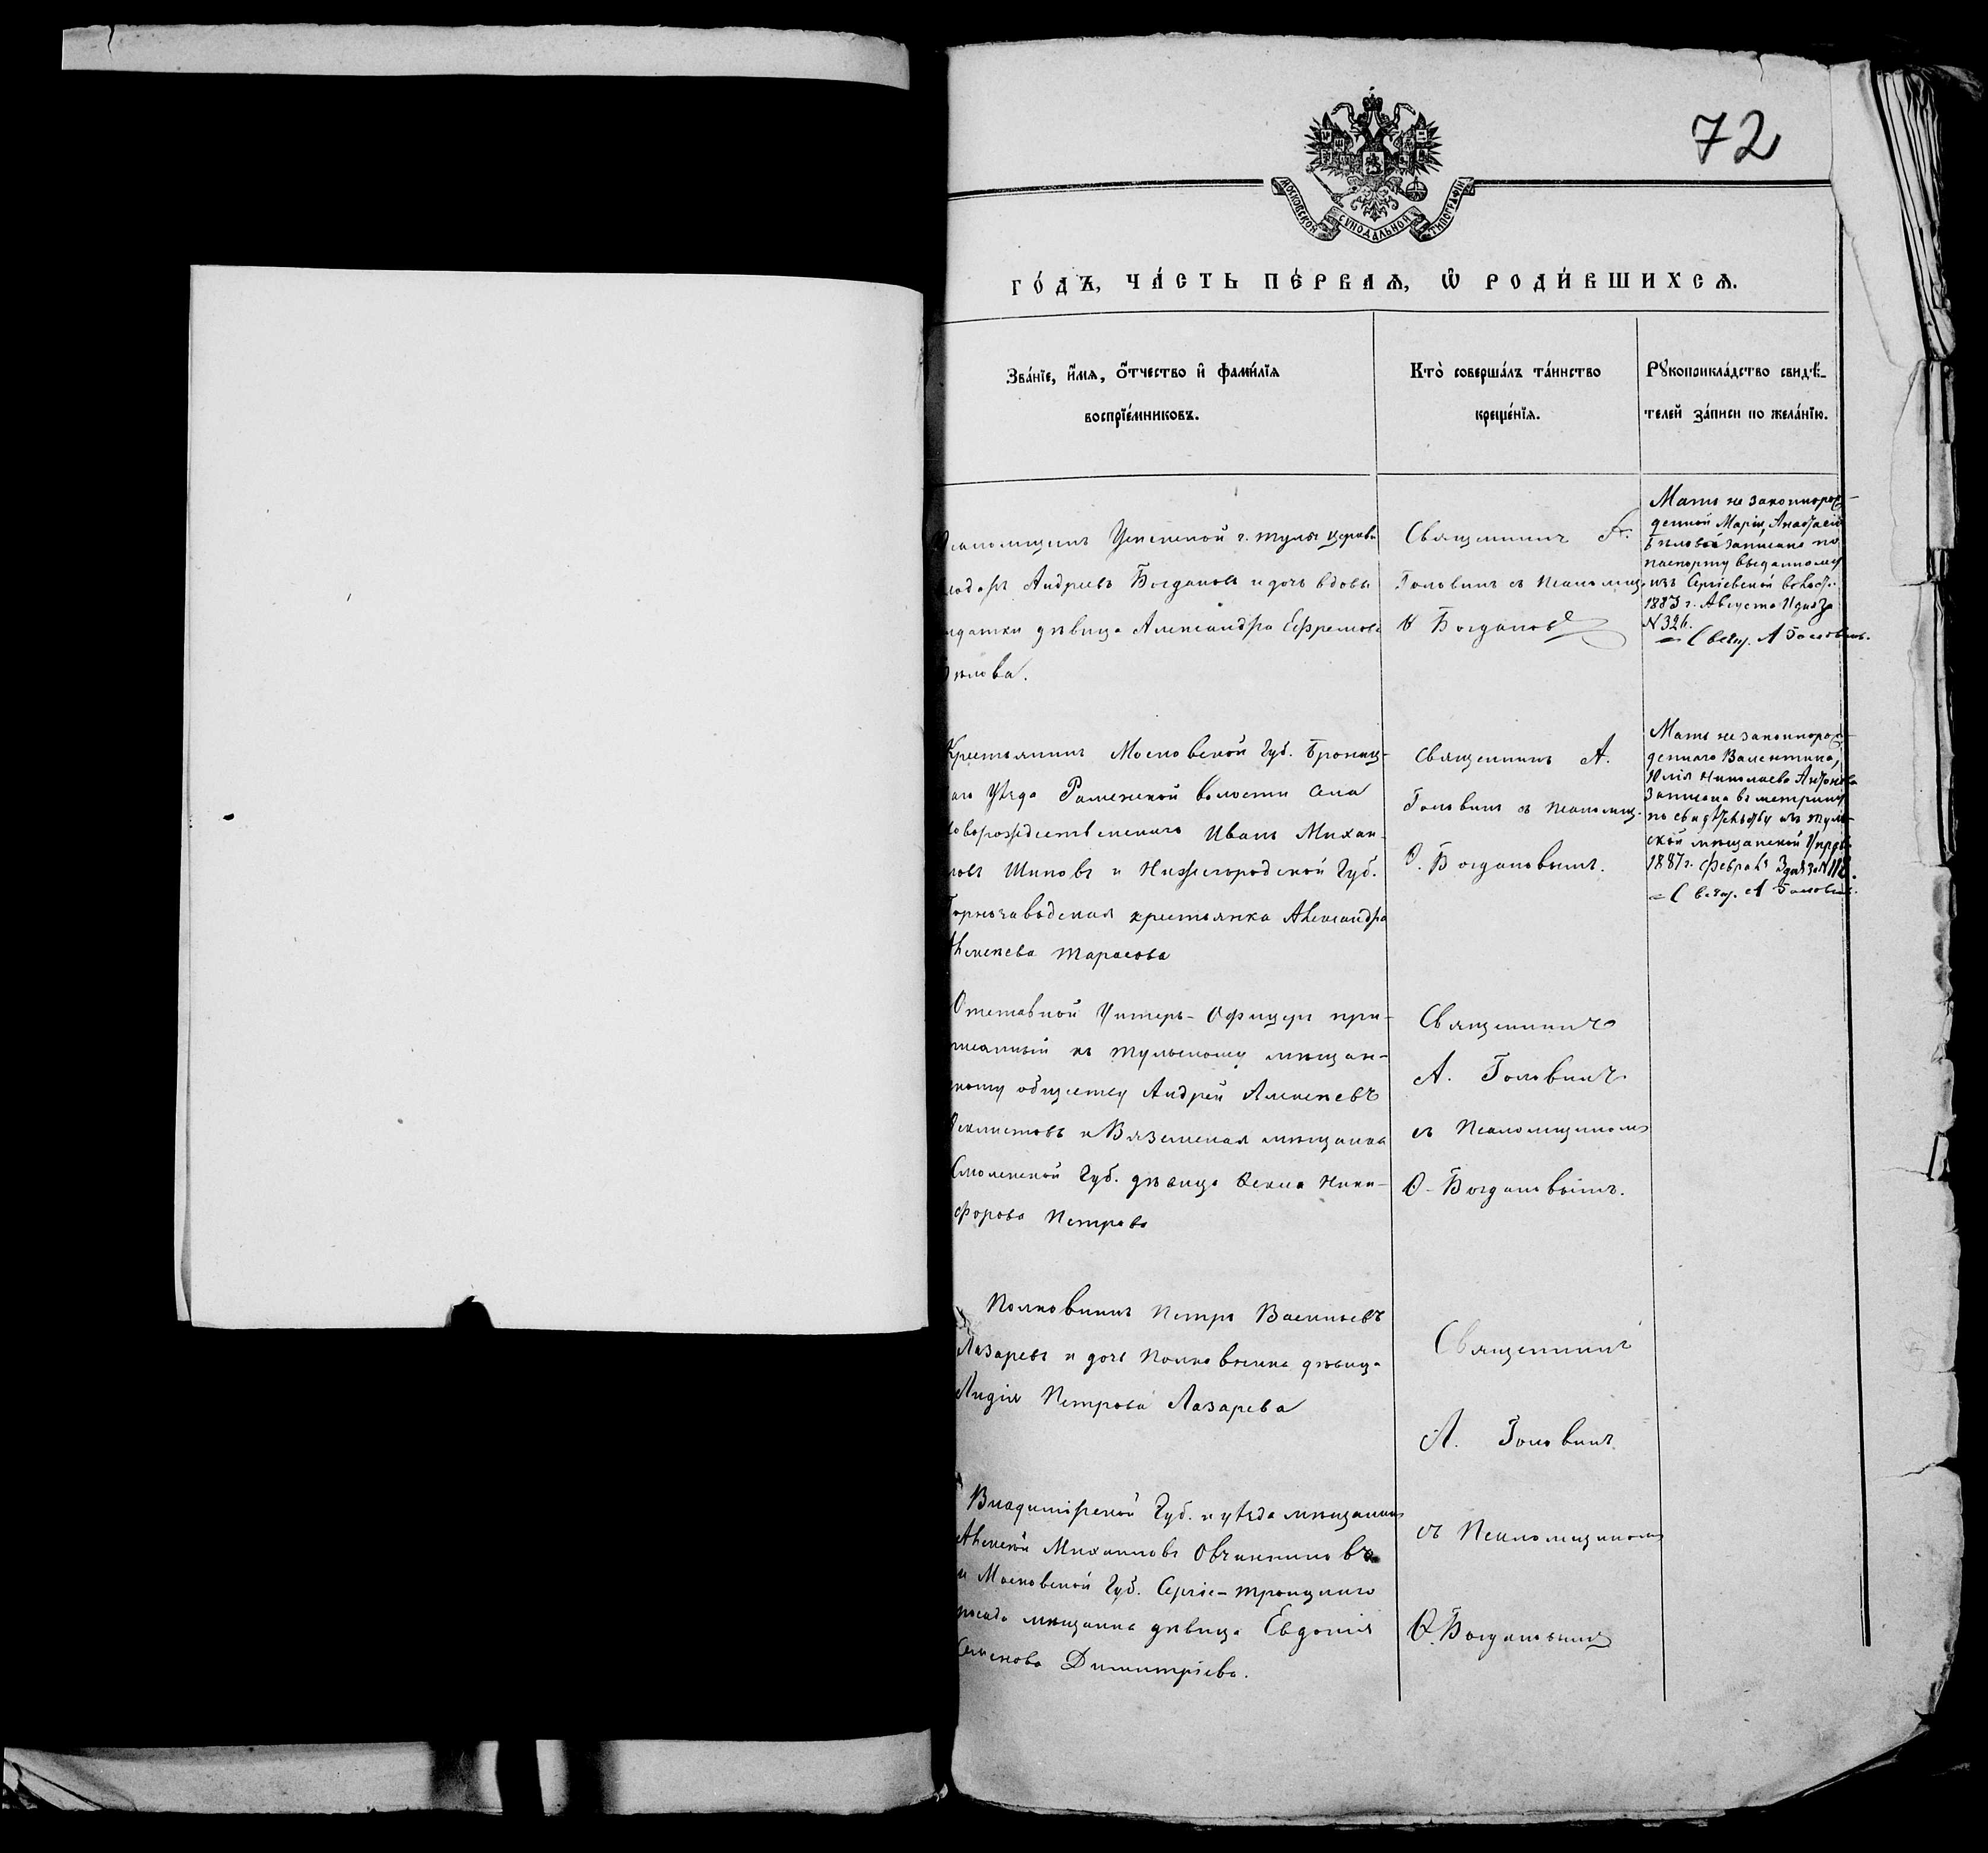 72
МОСКОВСКОЙ СѴНОДАЛЬНОЙ ТИПОГРАФІИ
ГО́ДЪ, ЧА́СТЬ ПЕ́РВАѦ, Ѡ҆ РОДИ́ВШИХСѦ.
Зва́нїе, и҆́мѧ, ѻ҆́тчество и҆ фами́лїѧ
воспрїе́мниковъ.
Кто̀ соверша́лъ та́инство
креще́нїѧ.
Рꙋкоприкла́дство свидѣ́-
телей за́писи по жела́нїю.
Успенской г. Тулы церкви
Андреевъ Богдановъ и дочь вдовы
дѣвица Александра Ефремова
Священникъ
Головинъ съ Псаломщ.
Богданов
Мать незаконнорож-
денной Маріи, Анастасія
Бѣлова записана по
паспорту выданному
изъ Сергіевской волости
1883 г. Августа
N 326.
= Свящ. А Головинъ.
Крестьянинъ Московской Губ. Бронниц-
аго Уѣзда Раменской волости села
оворождественскаго Иванъ Михаи-
ловъ Шиповъ и Нижегородской Губ.
Горнозаводская крестьянка Александра
Алексѣева Тарасова
Священникъ А.
Головинъ съ Псаломщ.
Ѳ. Богдановымъ.
Мать незаконнорож-
деннаго Валентина,
Юлія Николаева Антонова
записана въ метрику
по свидѣтельству изъ Туль-
ской мѣщанской Управы
1887 г. Февраля 3 дня за N 112.
= Свящ. А Головинъ.
Отставной Унтеръ-Офицеръ при-
писанный къ Тульскому мѣщан-
скому обществу Андрей Алексѣевъ
и Вяземская мѣщанка
Смоленской Губ. дѣвица Ники-
форова Петрова
Священникъ
А. Головинъ
съ Псаломщикомъ
Ѳ. Богдановымъ.
Полковникъ Петръ Васильевъ
Лазаревъ и дочь Полковника дѣвица
Лидія Петрова Лазарева
Священникъ
А. Головинъ
Владимірской Губ. и уѣзда мѣщанинъ
Алексѣй Михаиловъ Овчинниковъ
и Московской Губ. Сергіе-Троицкаго
посада мѣщанка дѣвица Евдокія
Семенова Димитріева.
съ Псаломщикомъ
Ѳ. Богдановымъ